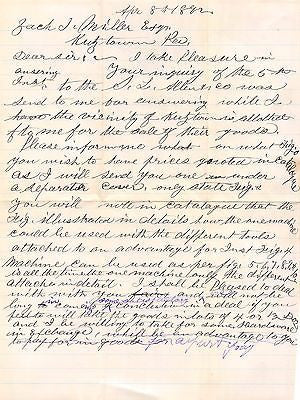 Apr 8th 1892
Zach J. Miller Esqr.
Kutztown Pa.
Dear sir: I take Pleasure in
ansering Your inquiry of the 5th
Inst. to the S. S. Co was
send to me bar endwering while I
have the vicinity of Kutztown is allotted
to me for the sale of their goods.
Please inform me on what Fig's
you wish to have prices quoted in cat
as I will send you one under
a separate cover only state Fig's
you will note in catalogue that the
Fig. Illusstrated in details how the one machine
could be used with the different tools
attached to an advantage for Inst Fig 4
Machine can be used as per fig 5, 6, 7, 8
is all the time the one machine only the different
attaches in detail. I shall be Pleased to deal
with you and will not be
in a deal if you
to will take the goods in lots of 4 or 1/2 Doz
and I be willing to take for some Hardware
in exchange which will be an advantage to you
to pay for in goods for a part